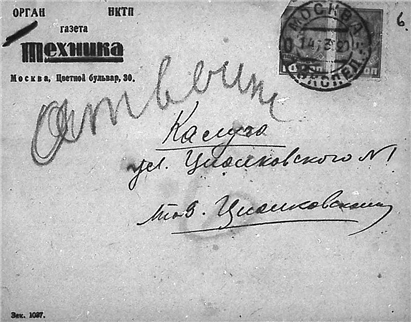 ОРГАН НКТП
6.
газета
Техника
Москва, Цветной бульвар, 30.
МОСКВА
ЭКСПЕД.
ответил
Калуга
ул. Циолковского №1
тов. Циолковскому
Зак. 1097.